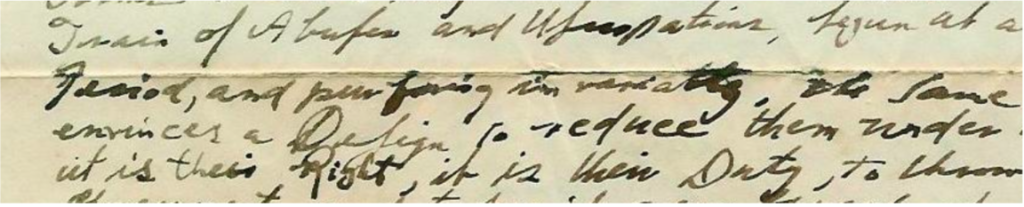 Train of Abuses and Usurpations, begun at a
Period, and pursuing invariably, the Same
envinces a Design to reduce them under
it is their Right, it is their Duty, to throw